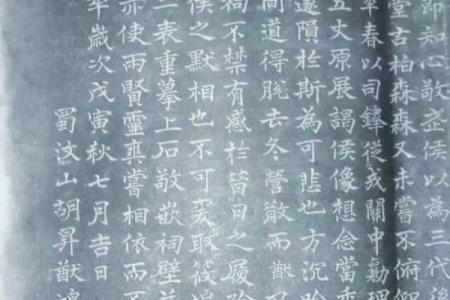 即知心敬武侯以為三代後
堂古柏森森又未嘗不俯仰
年春以司鐸從戎關中勦理
五丈原展謁侯像想念當
遂隕於斯為可悲也方沉吟
間道得脫去冬營散而猷
祠不禁有感於昔日之履
侯之默相也不可爰取筱
二表重摹上石敬嵌祠壁
亦使兩賢靈爽嘗相依而不
年歲次戊寅秋七月吉日
蜀汶山胡昇猷